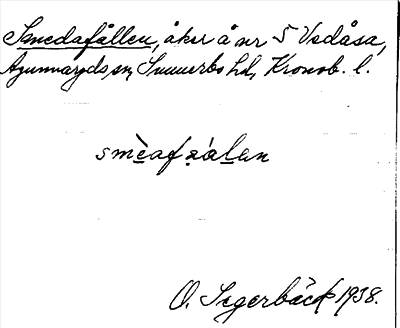 Smedafållen, åker å nr 5 Vedåsa,
Agunnaryds sn, Sunnerbo hd, Kronob. l.
smèafàlen
O. Segerbäck 1938.